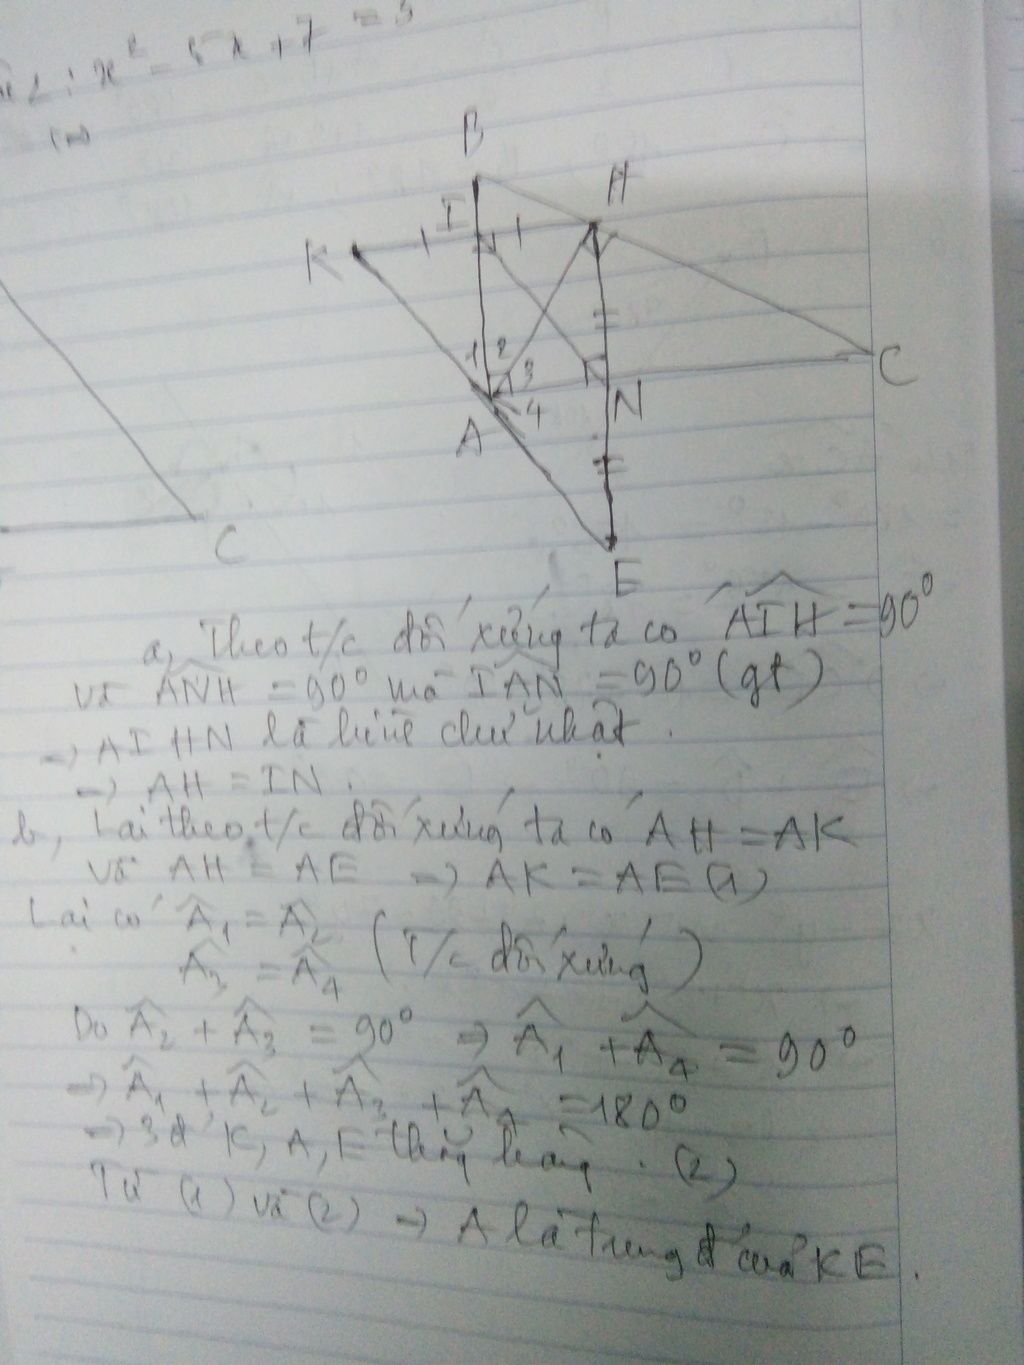 2: x² - 5x + 7 = 3
B
H
I
K
1 2
3
4
A
N
C
E
C
a, Theo t/c đối xứng ta có AIH = 90°
và ANH = 90° mà IAN = 90° (gt)
=> AIHN là hình chữ nhật.
=> AH = IN.
b, Lại theo t/c đối xứng ta có AH = AK
và AH = AE => AK = AE (1)
Lại có Â₁ = Â₂
Â₃ = Â₄ (T/c đối xứng)
Do Â₂ + Â₃ = 90° => Â₁ + Â₄ = 90°
=> Â₁ + Â₂ + Â₃ + Â₄ = 180°
=> 3 đ' K, A, E thẳng hàng. (2)
Từ (1) và (2) => A là trung đ' của KE.